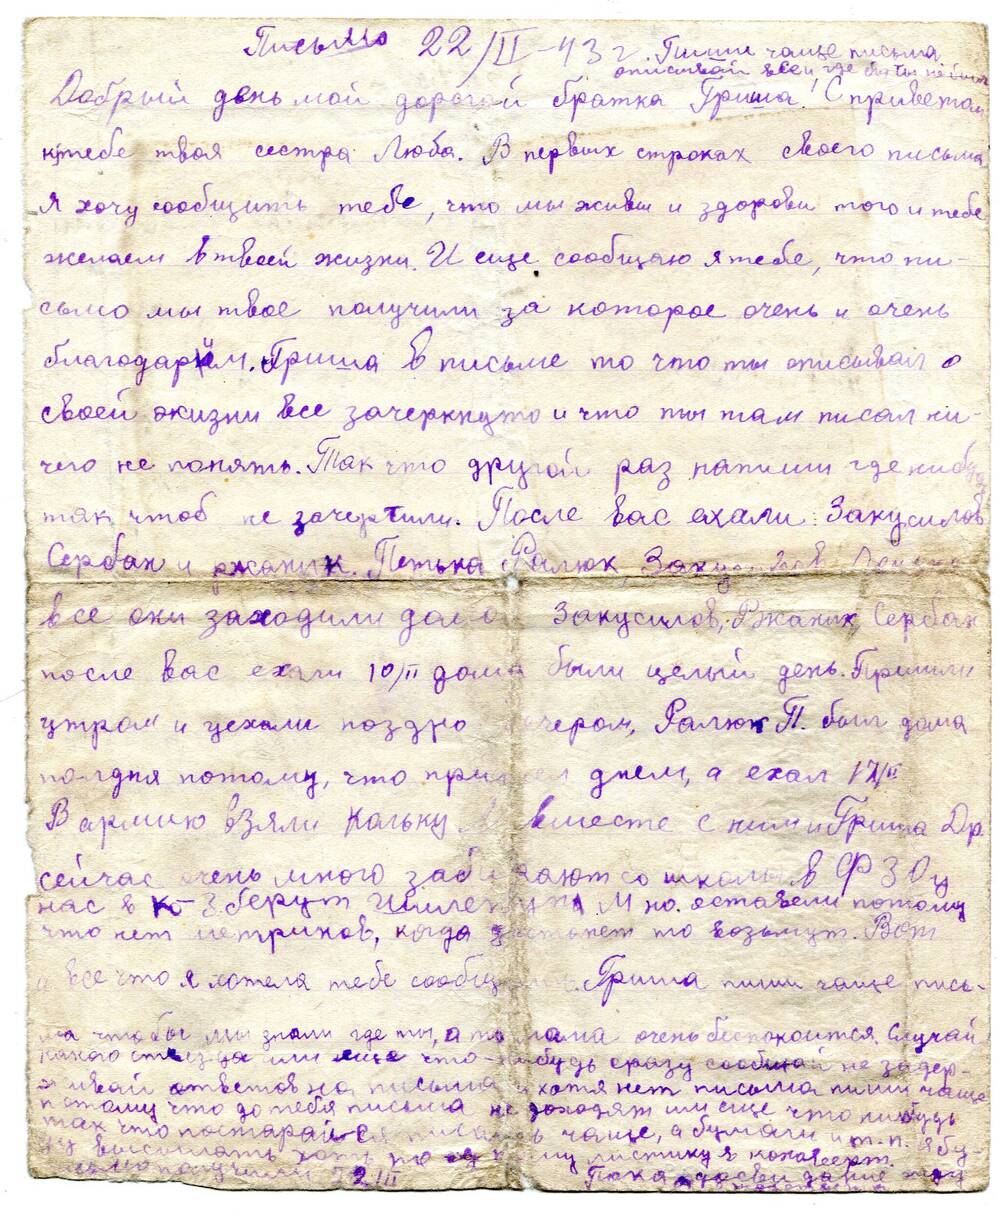 Письмо 22/II-43 г. Пиши чаще письма
описывай все и где бы ты не был
Добрый день мой дорогой братка Гриша! С приветом
к тебе твоя сестра Люба. В первых строках своего письма
я хочу сообщить тебе, что мы живы и здоровы того и тебе
желаем в твоей жизни. И еще сообщаю я тебе, что пи-
сьмо мы твое получили за которое очень и очень
благодарим. Гриша в письме то что ты описывал о
своей жизни все зачеркнуто и что ты там писал ни-
чего не понять. Так что другой раз напиши где нибудь
так чтоб не зачертили. После вас ехали: Закусилов
Сербан и ржаник. Петька Ралюк, Закусилов
все они заходили домо Закусилов, Ржаник, Сербан
после вас ехали 10/II дома были целый день. Пришли
утром и уехали поздно вечером, Ралюк П. был дома
полдня потому, что пришел днем, а ехал 17/II
В армию взяли Кольку вместе с ним и Гриша Др.
сейчас очень много забирают со школы в ФЗО у
нас в берут М но. оставели потому
что нет метриков, когда достанет то возьмут. Вот
и все что я хотела тебе сообщить. Гриша пиши чаще пись-
ма чтобы мы знали где ты, а то мама очень беспокоится. Случай
какого отъезда или еще что-нибудь сразу сообщай не задер-
живай ответов на письма и хотя нет письма пиши чаще
потому что до тебя письма не доходят или еще что нибудь
так что постарайся писать чаще, а бумаги и т.п. я бу-
ду высылать хоть по одному листику в конверт.
письмо получили 2/II Пока досвидание жду